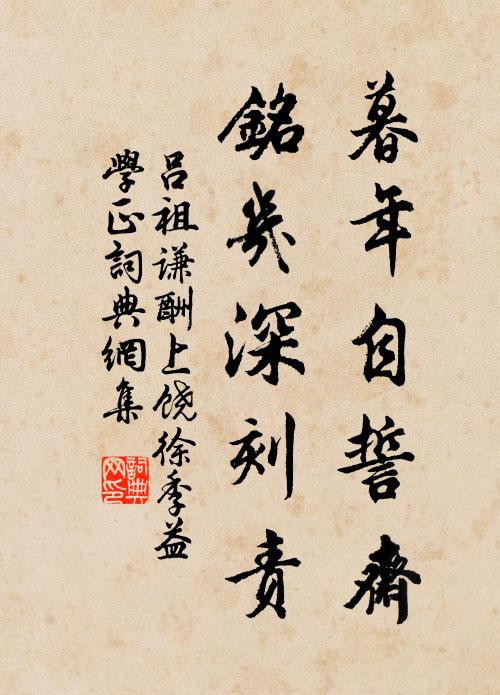 暮年自誓齋
銘幾深刻責
吕祖谦酬上饶徐季益
學正詞典網集
詞典
网印